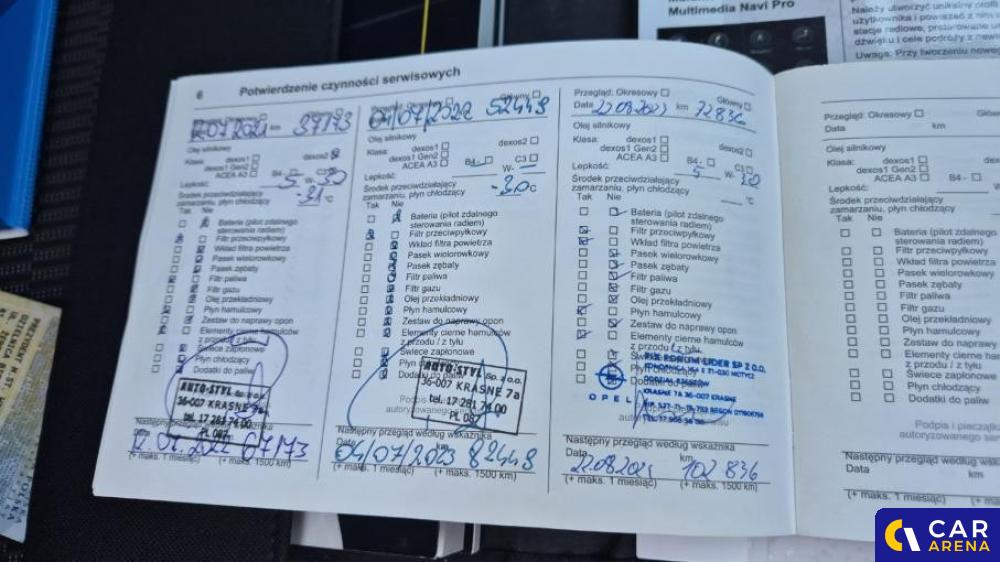 Multimedia Navi Pro
Należy utworzyć unikalny profil
użytkownika i powiązać z nim
stacje radiowe, prezerowane
dźwięku i cele podróży z
Uwaga: Przy tworzeniu
6 Potwierdzenie czynności serwisowych
07 2021 km 37173
Olej silnikowy
Klasa: dexos1 dexos2
dexos1 Gen2
ACEA A3 B4 -
Lepkość: 5 W- 30
Środek przeciwdziałający
zamarzaniu, płyn chłodzący -31 °C
Tak Nie
Bateria (pilot zdalnego
sterowania radiem)
Filtr przeciwpyłkowy
Wkład filtra powietrza
Pasek wielorowkowy
Pasek zębaty
Filtr paliwa
Filtr gazu
Olej przekładniowy
Płyn hamulcowy
Zestaw do naprawy opon
Elementy cierne hamulców
z przodu / z tyłu
Świece zapłonowe
Płyn chłodzący
Dodatki do paliw
AUTO-STYL Sp. z o.o.
36-007 KRASNE 7a
tel. 17 281 74 00
PL 087
Następny przegląd według wskaźnika
07. 2022 67173
(+ maks. 1 miesiąc) (+ maks. 1500 km)
04/07/2022 52449
Olej silnikowy
Klasa: dexos1 dexos2
dexos1 Gen2
ACEA A3 B4 - C3
Lepkość: W-
Środek przeciwdziałający
zamarzaniu, płyn chłodzący -30 °C
Tak Nie
Bateria (pilot zdalnego
sterowania radiem)
Filtr przeciwpyłkowy
Wkład filtra powietrza
Pasek wielorowkowy
Pasek zębaty
Filtr paliwa
Filtr gazu
Olej przekładniowy
Płyn hamulcowy
Zestaw do naprawy opon
Elementy cierne hamulców
z przodu / z tyłu
Świece zapłonowe
Płyn chłodzący
Dodatki do paliw
AUTO-STYL Sp. z o.o.
36-007 KRASNE 7a
tel. 17 281 74 00
PL 087
Następny przegląd według wskaźnika
Data 04/07/2023 km 82449
(+ maks. 1 miesiąc) (+ maks. 1500 km)
Przegląd: Okresowy Główny
Data 22.08.2023 km 72836
Olej silnikowy
Klasa: dexos1 dexos2
dexos1 Gen2
ACEA A3 B4 - C3
Lepkość: 5 W- 30
Środek przeciwdziałający
zamarzaniu, płyn chłodzący °C
Tak Nie
Bateria (pilot zdalnego
sterowania radiem)
Filtr przeciwpyłkowy
Wkład filtra powietrza
Pasek wielorowkowy
Pasek zębaty
Filtr paliwa
Filtr gazu
Olej przekładniowy
Płyn hamulcowy
Zestaw do naprawy opon
Elementy cierne hamulców
z przodu / z tyłu
OPEL
KRASNE 7A 36-007 KRASNE
Następny przegląd według wskaźnika
Data 22.08.2024 km 102 836
(+ maks. 1 miesiąc) (+ maks. 1500 km)
Przegląd: Okresowy
Data km
Olej silnikowy
Klasa: dexos1
dexos1 Gen2
ACEA A3 B4 -
Lepkość:
Środek przeciwdziałający
zamarzaniu, płyn chłodzący
Tak Nie
Bateria (pilot zdalnego
sterowania radiem)
Filtr przeciwpyłkowy
Wkład filtra powietrza
Pasek wielorowkowy
Pasek zębaty
Filtr paliwa
Filtr gazu
Olej przekładniowy
Płyn hamulcowy
Zestaw do naprawy opon
Elementy cierne hamulców
z przodu / z tyłu
Świece zapłonowe
Płyn chłodzący
Dodatki do paliw
Podpis i
autoryzowanego
Następny przegląd według
Data km
(+ maks. 1 miesiąc) (+ maks.
CAR
ARENA